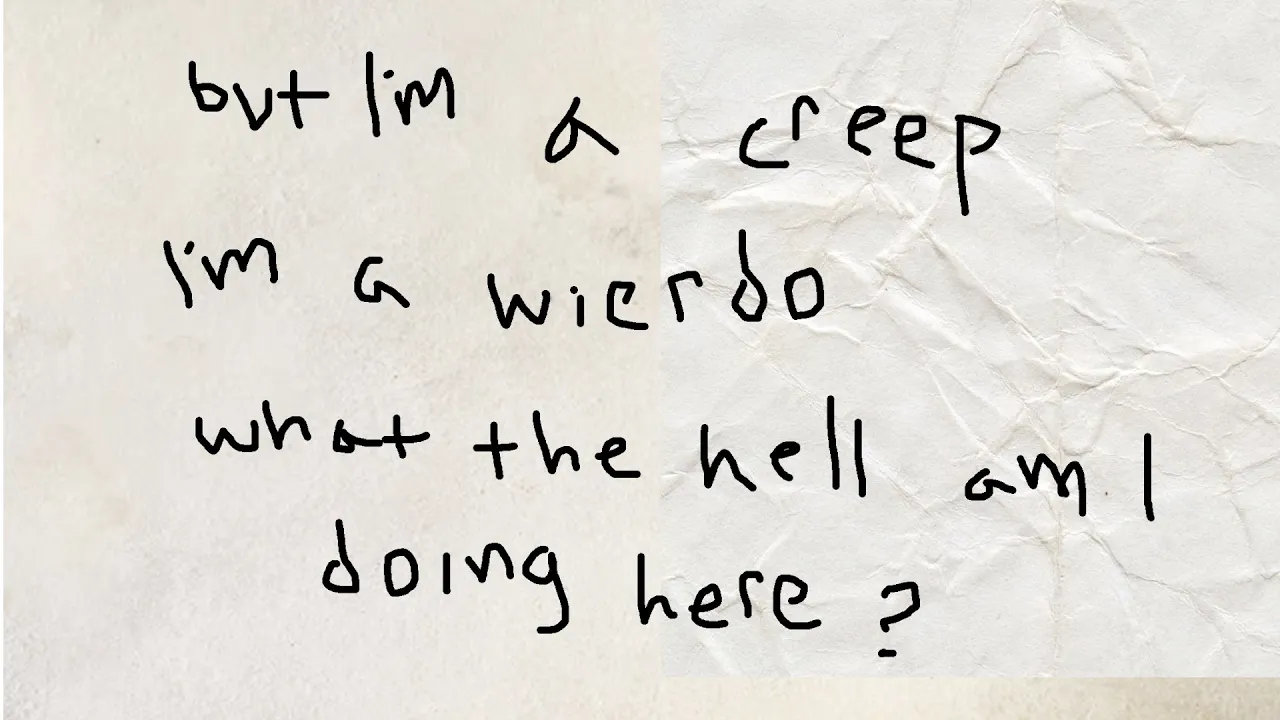 but I'm a creep
I'm a wierdo
what the hell am I
doing here?